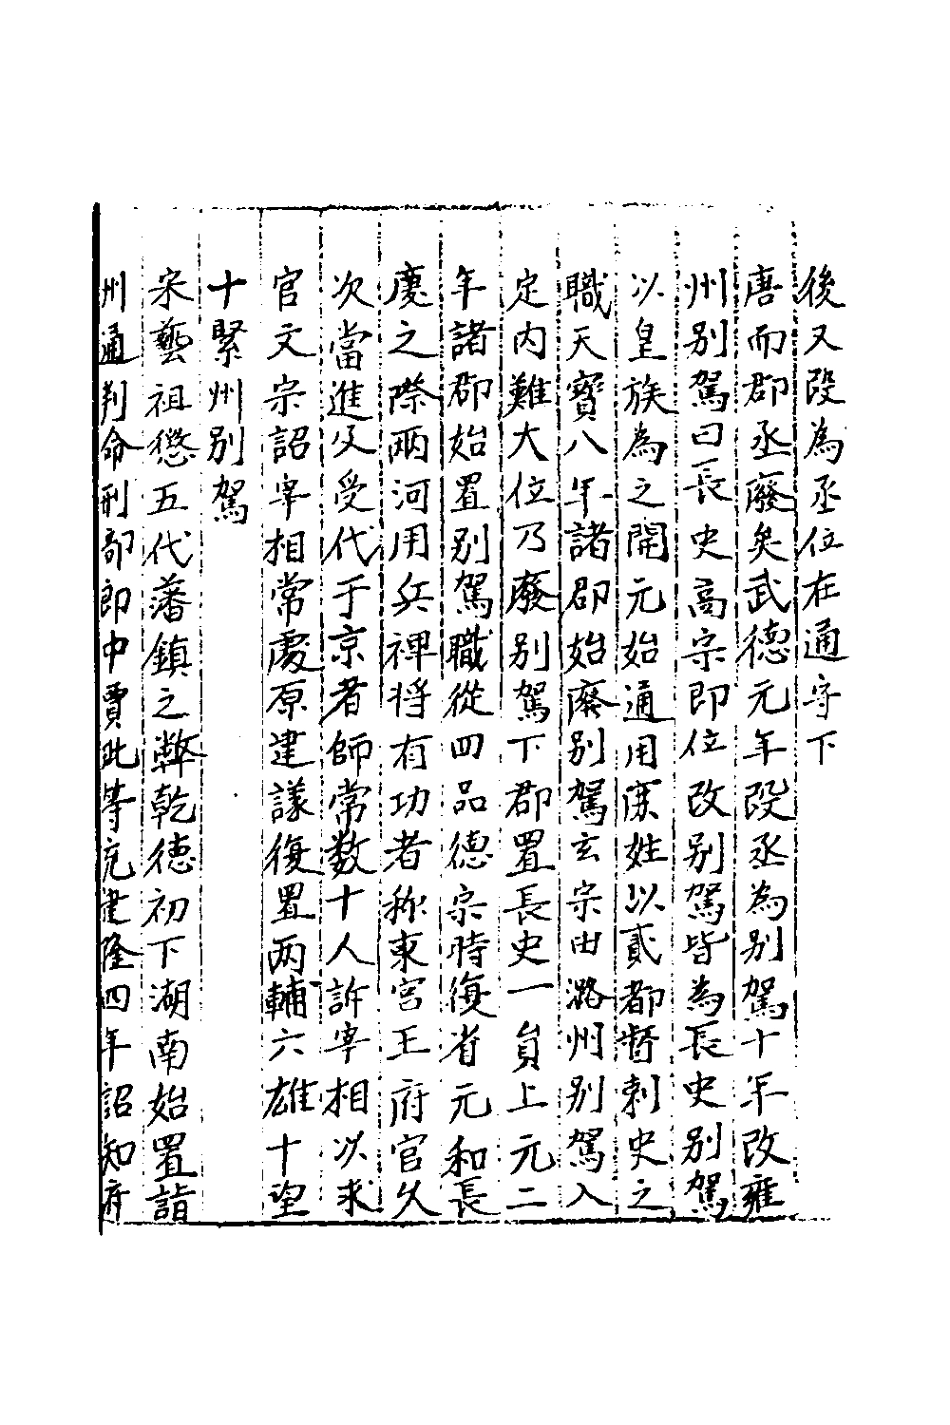 後又改為丞位在通守下
唐而郡丞廢矣武德元年改丞為別駕十年改雍
州別駕曰長史高宗即位改別駕皆為長史別駕
以皇族為之開元始通用庶姓以貳都督刺史之
職天寶八年諸郡始廢別駕玄宗由潞州別駕入
定内難大位乃廢別駕下郡置長史一員上元二
年諸郡始置別駕職從四品德宗時復省元和長
慶之際兩河用兵裨将有功者称東宮王府官久
次當進及受代于京者師常数十人訴宰相以求
官文宗詔宰相常處原建議復置两輔六雄十望
十緊州別駕
宋藝祖懲五代藩鎮之弊乾德初下湖南始置諸
州通判命刑部郎中賈玭等充建隆四年詔知府